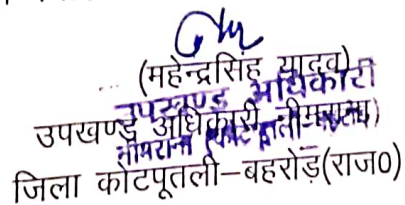 (महेन्द्रसिंह यादव)
उपखण्ड अधिकारी
उपखण्ड अधिकारी नीमराना
नीमराना
जिला कोटपूतली–बहरोड़(राज0)